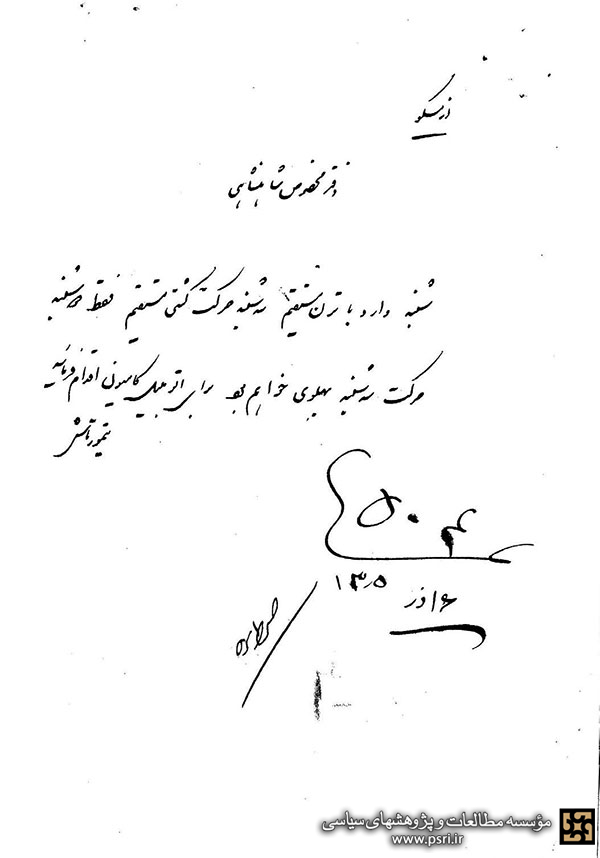 از مسکو
دفتر مخصوص شاهنشاهی
شنبه وارد با ترن مستقیم سه شنبه حرکت کشتی مستقیم فقط شنبه
حرکت سه شنبه پهلوی خواهم بود برای اتومبیل کامیون اقدام فرمایید
تیمورتاش
۵۰۴
۶ اذر ۱۳۰۵
مؤسسه مطالعات و پژوهشهای سیاسی
www.psri.ir